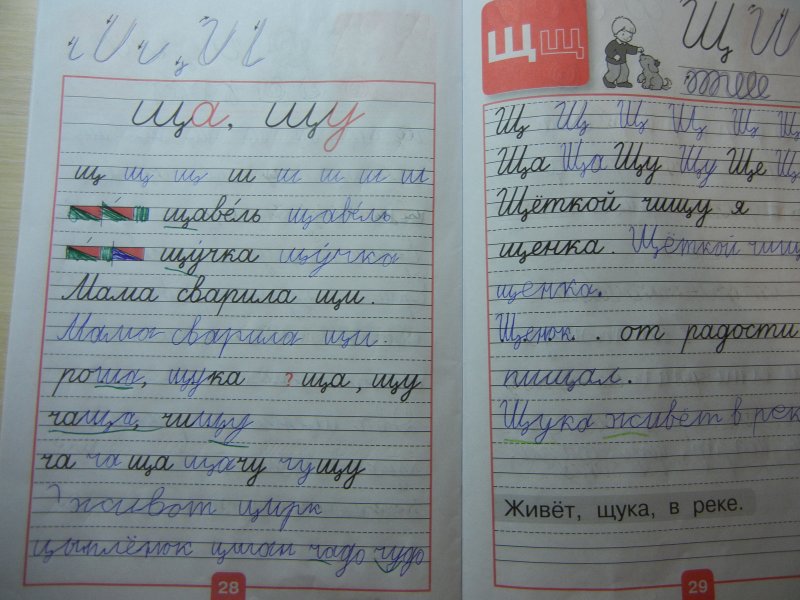 ща, щу
щ щ щ ш ш ш ш ш
щаве́ль щаве́ль
щу́чка щу́чка
Мама сварила щи.
Мама сварила щи.
роща, щука ? ща, щу
чаща, чищу
ча ча ща щачу чущу
? живот цирк
цыплёнок цыган чадо чудо
28
Щ щ
Щ Щ Щ Щ Щ Щ
Ща Ща Щу Щу Ще Щ
Щёткой чищу я
щенка. Щёткой чищу
щенка.
Щенок . от радости
пищал.
Щука живёт в реке
Живёт, щука, в реке.
29